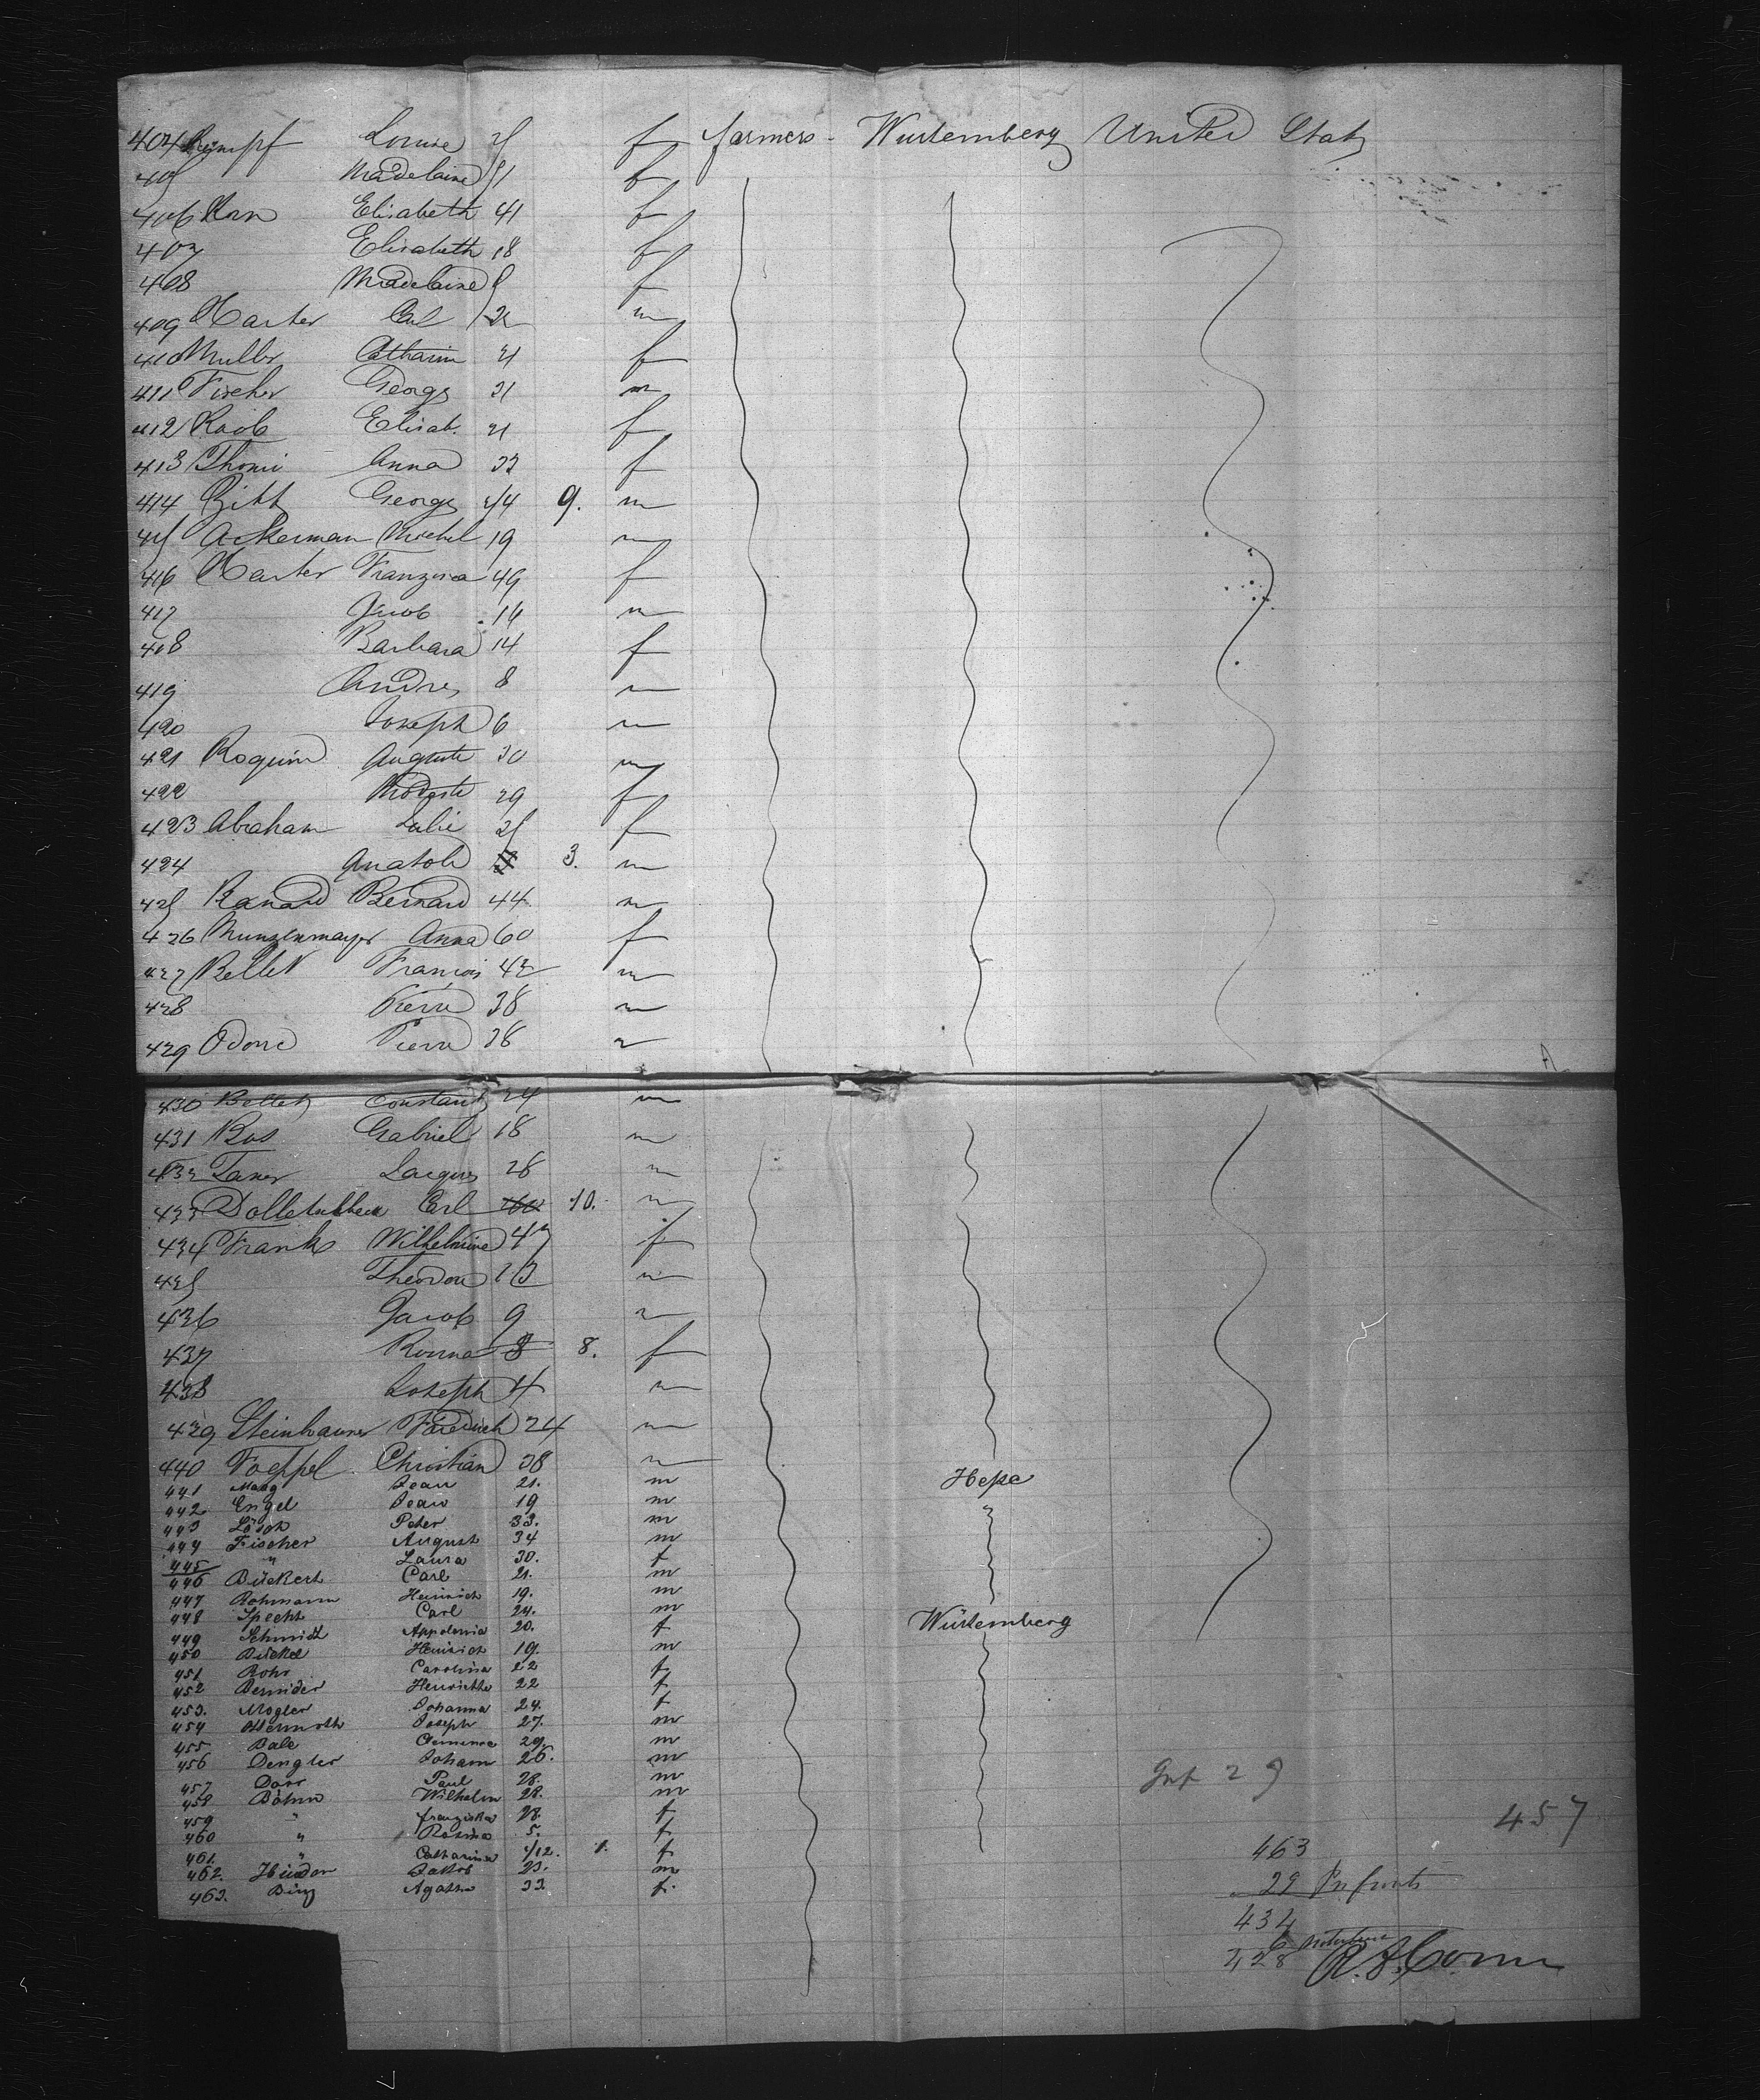 404 Rumpf Louise 25 f farmers - Wurtemberg United Stats
405 Madelaine 51 f
406 Horn Elisabeth 41 f
407 Elisabeth 18 f
408 Madelaine 5 f
409 Harter Carl 22 m
410 Muller Catharin 21 f
411 Fischer George 21 m
412 Raob Elisab. 21 f
413 Thomi Anna 22 f
414 George 44 9. m
415 Ackerman Michel 19 m
416 Harter Franzisca 49 f
417 Jacob 14 m
418 Barbara 14 f
419 Andre 8 m
420 Joseph 6 m
421 Roquin Auguste 30 m
422 Modeste 29 f
423 Abraham Julie 25 f
424 Anatole 3. m
425 Bernard 44 m
426 Munzenmayer Anna 60 f
427 Bellet François 42 m
428 Pierre 38 m
429 Odone Pierre 38 m
430 Bellet Constant 24 m
431 Ros Gabriel 18 m
432 Taner Jacques 28 m
433 Carl 10. m
434 Frank Wilhelmine 47 f
435 Theodore 13 m
436 Jacob 9 m
437 Rosina 8 8. f
438 Joseph 4 m
439 Steinhauser Friedrich 24 m
440 Voeppel Christian 38 m
441 Maag Jean 21. m Hesse
442 Engel Jean 19 m "
443 Lösch Peter 33. m
444 Fischer August 34 m
445 " Laura 30. f
446 Bückert Carl 21. m
447 Rohmann Heinrich 19. m
448 Specht Carl 24. m Würtemberg
449 Schmidt Appolonia 20. f
450 Bückel Heinrich 19. m
451 Rohr Carolina 22 f
452 Henriette 22 f
453. Mogler Johanna 24. f
454 Joseph 27. m
455 Bale 29. m
456 Dengler Johann 26. m
457 Dorr Paul 28. m
458 Böhm Wilhelm 28. m
459 " franziska 28. f
460 " Rosina 5. f
461. " Catharina 1/12. 1. f
462. Jakob 23. m
463. Binz Agatha 33. f.
Inf 29
457
463
29 Infants
434
6
428